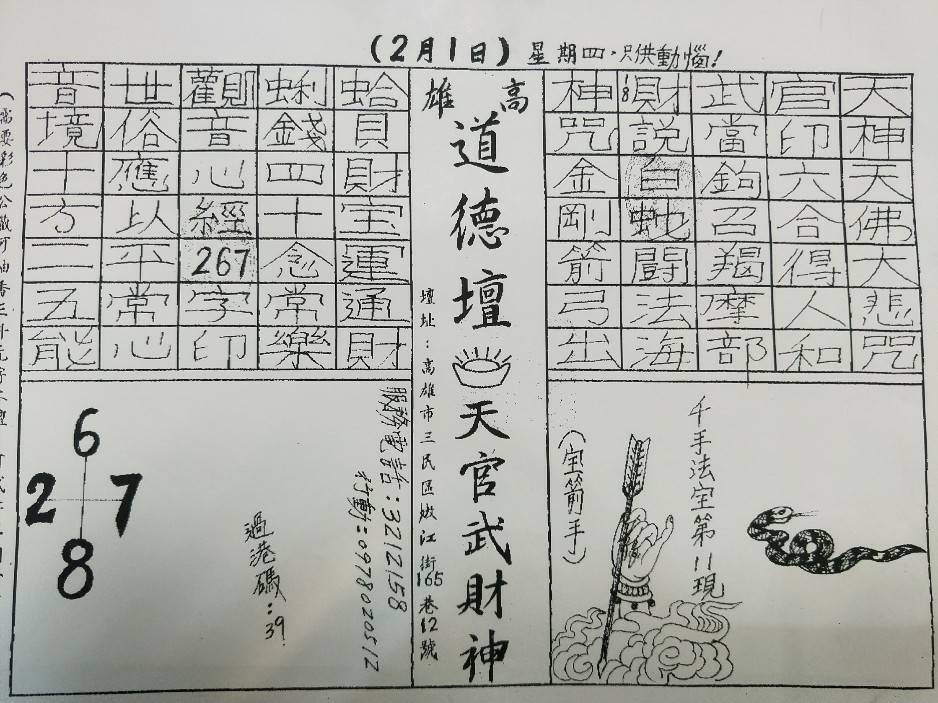 (2月1日) 星期四,只供動惱!
天神天佛大悲咒
官印六合得人和
武當鉤召羯摩部
財說白蛇鬪法海
神咒金剛箭弓出
千手法宝第11現
(宝箭手)
高雄
道德壇
天官武財神
壇址:高雄市三民區嫩江街165巷12號
蛤貝財宝運通財
蜊錢四十念常樂
觀音心經267字印
世俗應以平常心
音境十方二五能
服務電話:3212158
行動:0978020512
過港碼:39
6
2 7
8
(需要彩色公